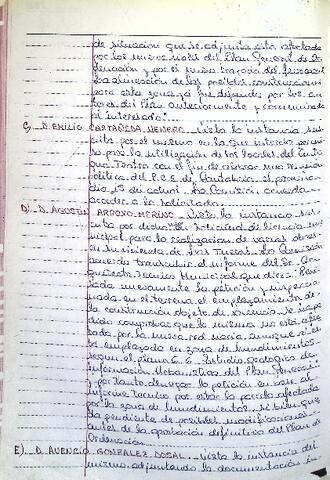 de situación que se adjunta esta afectada
por los nuevos viales del Plan General de Or-
denación y por el nuevo trazado del ferrocarril
para esta zona ya fue dejada por los au-
tores del Plan anteriormente y comunicada
al interesado.
C) D. EMILIO CASTAÑEDA VENERO. Vista la instancia sus-
crita por el mismo en la que interesa permi-
so para la utilización de los locales del Anti-
guo Teatro con el fin de celebrar una reunión
política del P.C.E. de Cantabria, el próximo
día 15 del actual. La Comisión acuerda
acceder a lo solicitado.
D) D. AGUSTIN ARROYO MERINO. Vista la instancia sus-
crita por dicho Sr. solicitud de licencia mu-
nicipal para la realización de varias obras
en su vivienda de Las Tuscas. La Comisión
acuerda transcribir el informe del Sr. Ar-
quitecto Técnico Municipal que dice: Revi-
sada nuevamente la petición y inspeccio-
nada en el terreno el emplazamiento de
la construcción objeto de licencia se ha po-
dido comprobar que la misma no está afec-
tada por la nueva red viaria, aunque sí es-
ta emplazada en zona de hundimientos
según el plano 6.6 Estudio geologico de
Información Urbanistica del Plan General
y por tanto denegar la petición en base al
informe tecnico por estar la parcela afectada
por la zona de hundimientos, si bien que-
da pendiente de posibles modificaciones
antes de la aprobación definitiva del Plan de
Ordenación.
E) D. AVENCIO GONZALEZ DOSAL. Vista la instancia del
mismo adjuntando la documentación in-